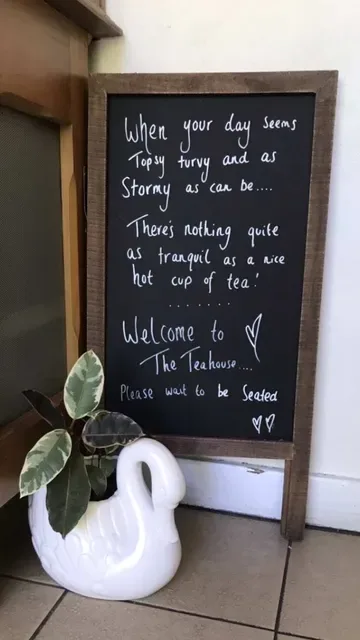 When your day seems
Topsy turvy and as
Stormy as can be....
There's nothing quite
as tranquil as a nice
hot cup of tea!
.......
Welcome to
The Teahouse....
Please wait to be Seated